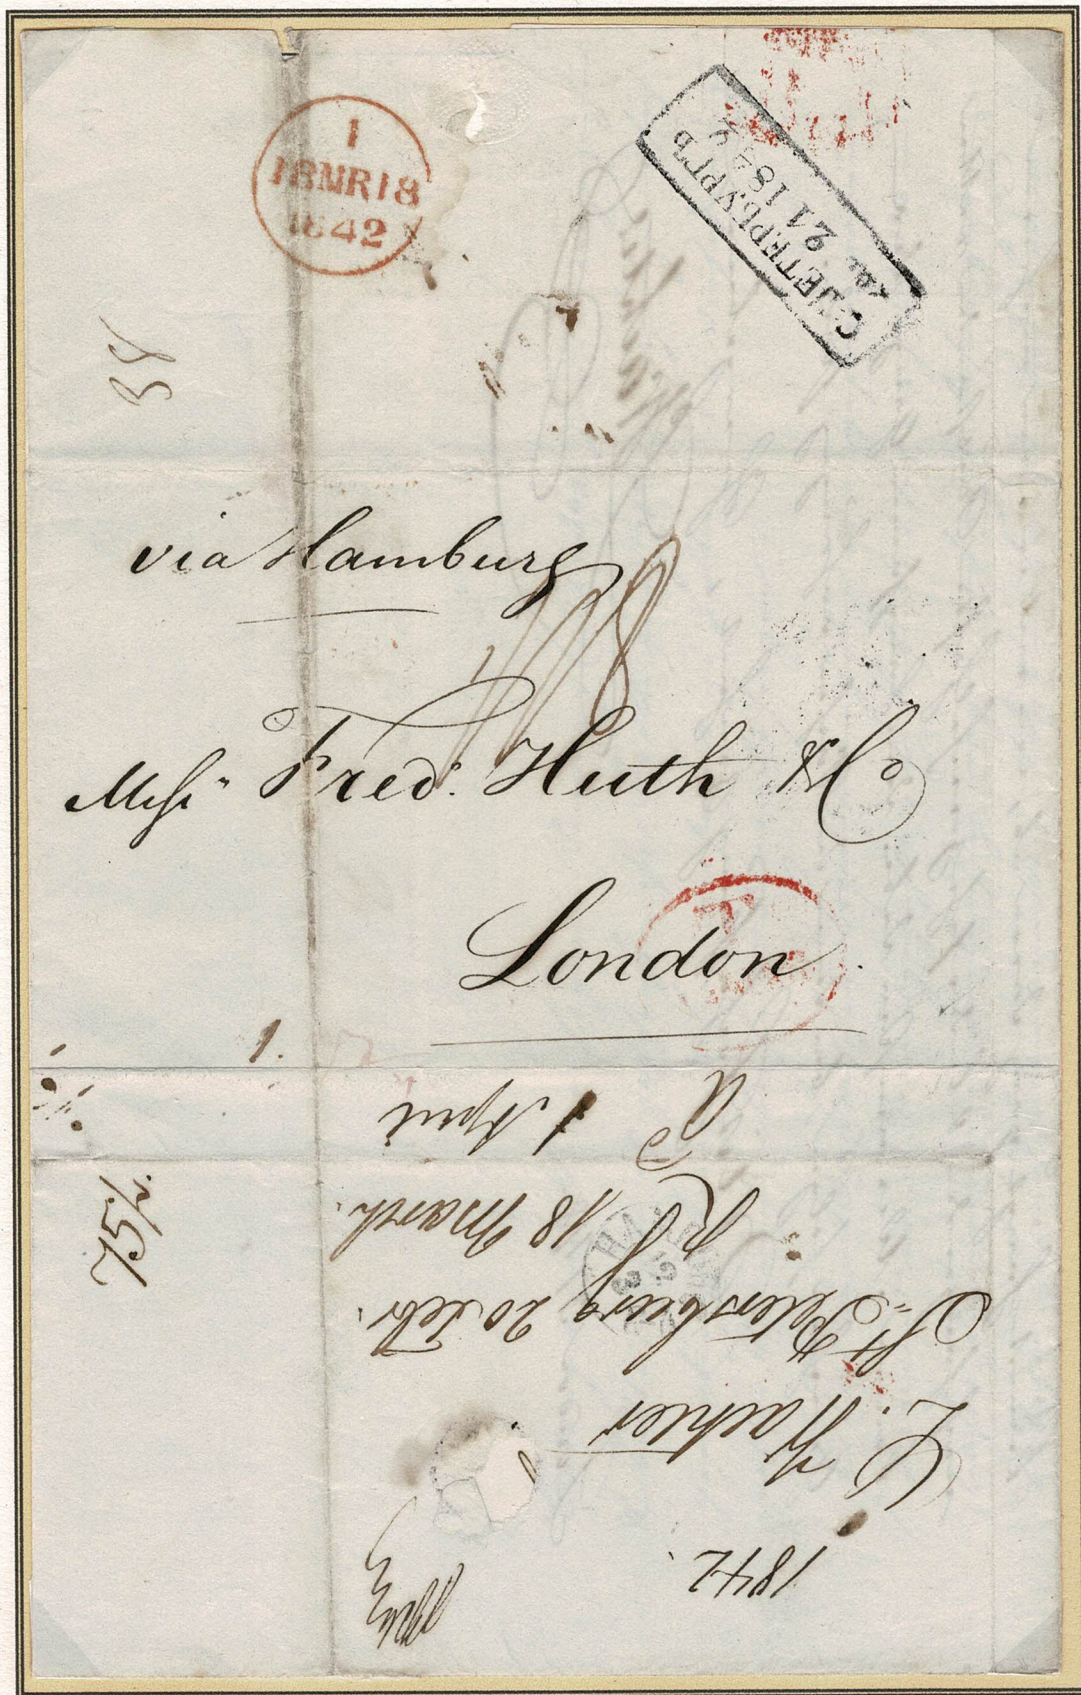 1
18MR18
1842
С.ПЕТЕРБУРГЪ
21 1842
38
via Hamburg
1/8
Messrs Fred: Huth & Co
London
1.
75/2.
1842.
L. Wachter
St. Petersburg 20 Febr.
Rd 18 March.
ad 1 April